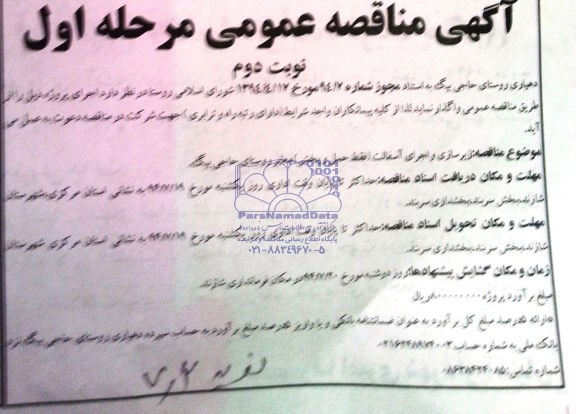 آگهی مناقصه عمومی مرحله اول
نوبت دوم
دهیاری روستای حاجی بیگ به استناد مجوز شماره ۹۴/۷ مورخ ۱۳۹۴/۴/۱۷ شورای اسلامی روستا در نظر دارد اجرای پروژه ذیل را از
طریق مناقصه عمومی واگذار نماید لذا از کلیه پیمانکاران واجد شرایط (دارای رتبه راه و ترابری) جهت شرکت در مناقصه دعوت به عمل می
آید.
موضوع مناقصه: زیرسازی و اجرای آسفالت (فقط حمل و پخش) معابر روستای حاجی بیگ
مهلت و مکان دریافت اسناد مناقصه: حداکثر تا پایان وقت اداری روز یکشنبه مورخ ۹۴/۷/۱۹ به نشانی استان مرکزی شهرستان
شازند بخش سربند بخشداری سربند.
مهلت و مکان تحویل اسناد مناقصه: حداکثر تا پایان وقت اداری روز یکشنبه مورخ ۹۴/۷/۱۹ به نشانی استان مرکزی شهرستان
شازند بخش سربند بخشداری سربند.
زمان و مکان گشایش پیشنهادها: روز دوشنبه مورخ ۹۴/۷/۲۰ در محل فرمانداری شازند
مبلغ برآورد پروژه ریال
ارائه درصد مبلغ کل برآورد به عنوان ضمانتنامه بانکی و یا واریز درصد مبلغ برآورد به حساب سپرده دهیاری روستای حاجی بیگ نزد
بانک ملی به شماره حساب
شماره تماس: ۰۸۶۳۸۴۲۴۰۸۵
ParsNamadData
پایگاه اطلاع رسانی مناقصه و مزایده
۰۲۱-۸۸۳۴۹۶۷۰-۵